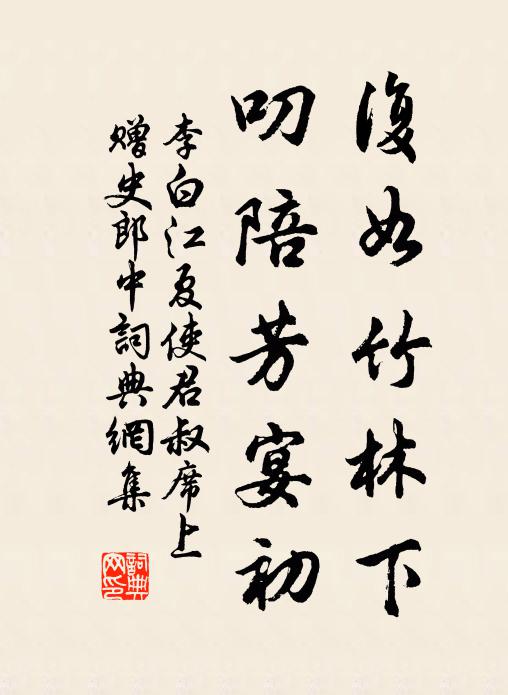 復如竹林下
叨陪芳宴初
李白江夏使君叔席上
贈史郎中詞典網集
詞典
网印